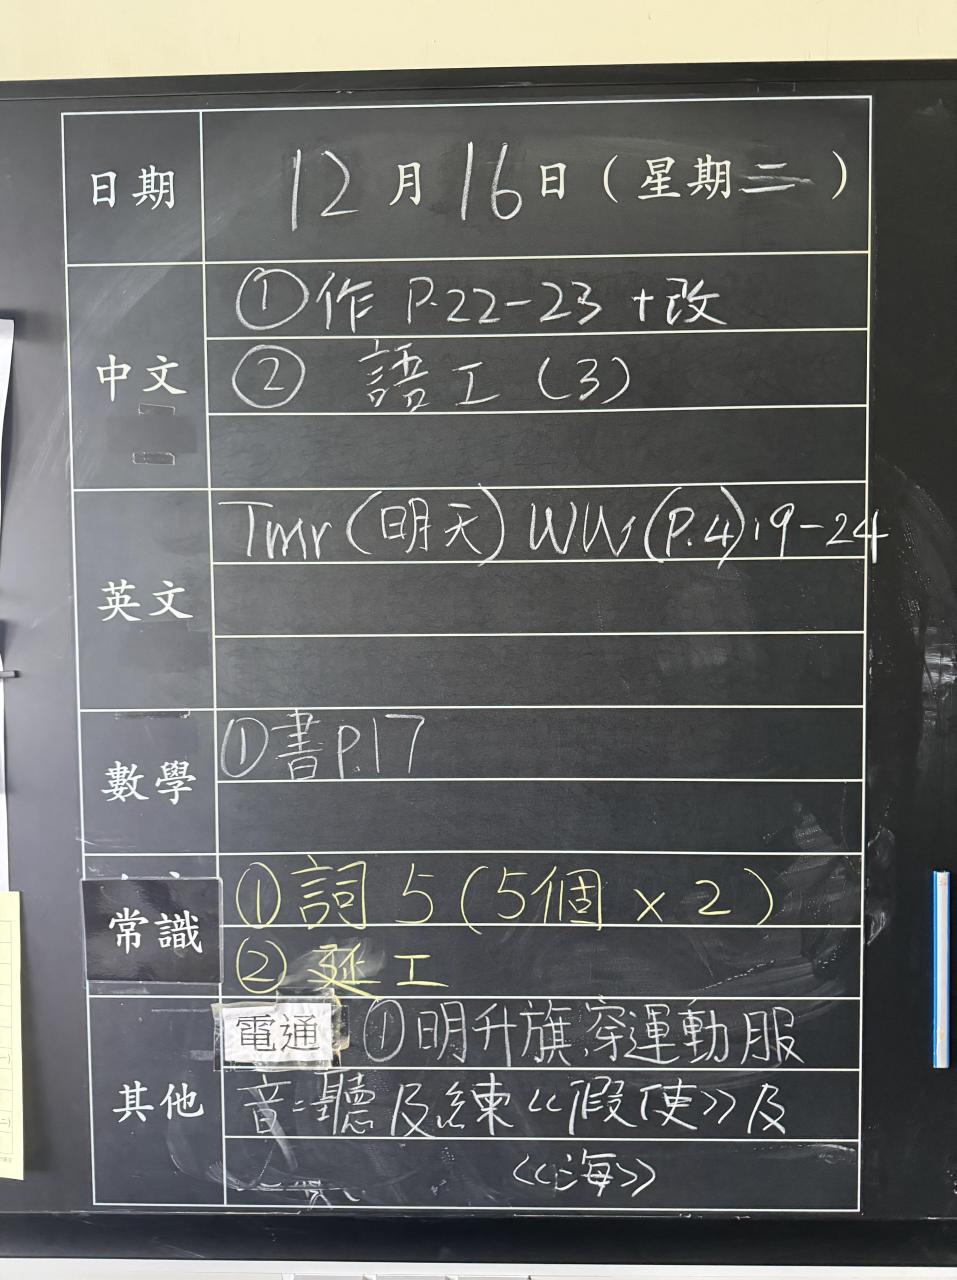 日期 12月16日(星期二)
中文 ①作 P.22-23 +改
② 語工(3)
英文 Tmr(明天) WW(P.4) 19-24
數學 ①書P.17
常識 ①詞 5(5個 x 2)
② 延工
其他 電通 ①明升旗,穿運動服
音:聽及練《假使》及
《海》